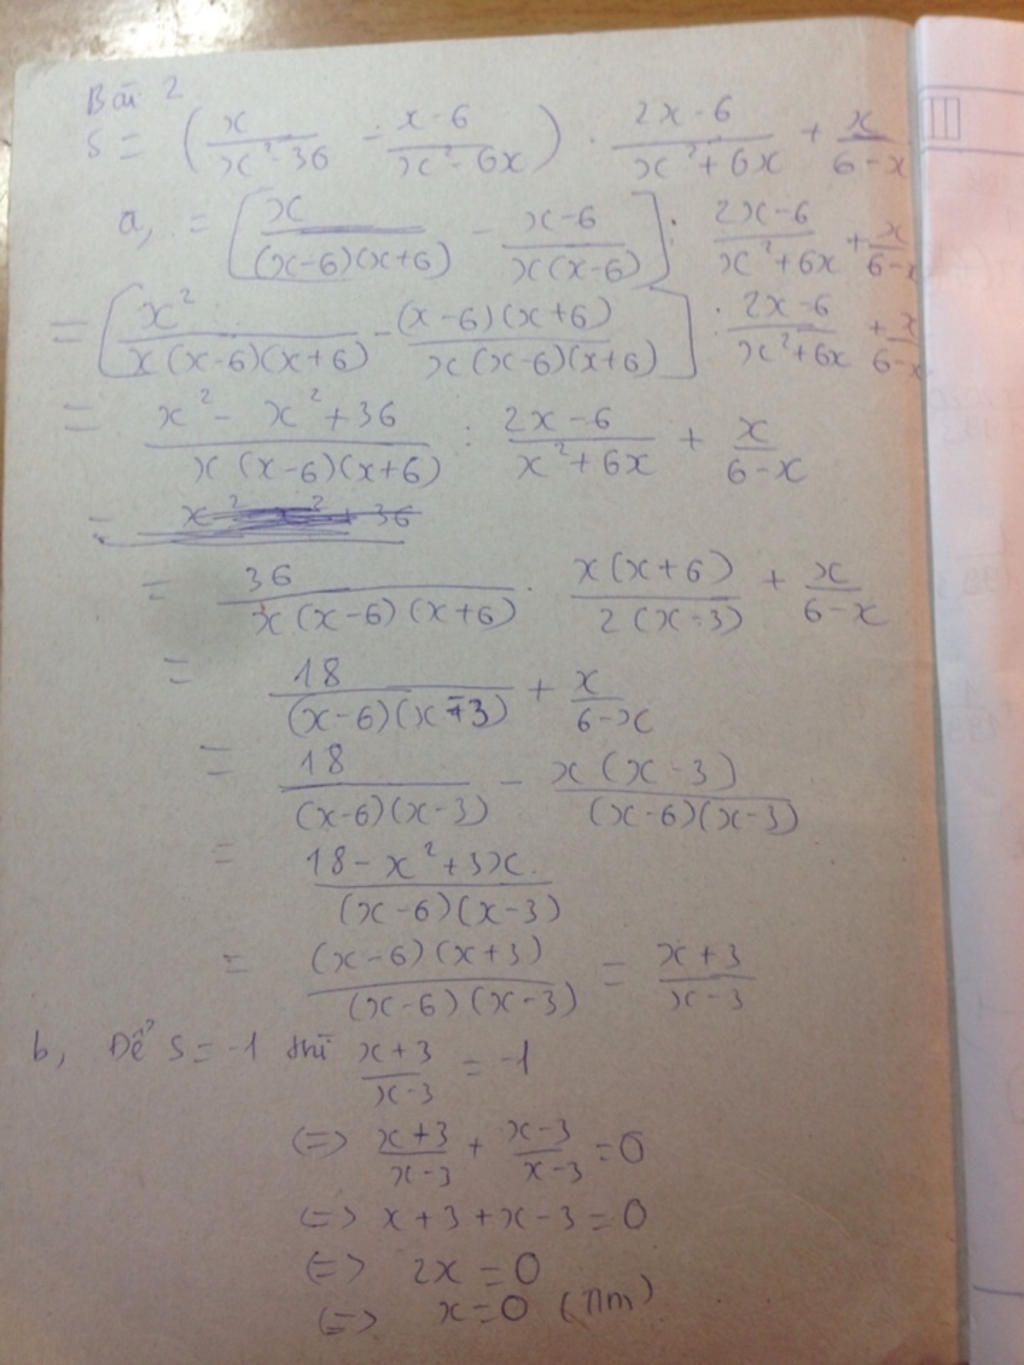 Bài 2
S = (x/(x² - 36) - (x - 6)/(x² - 6x)) : (2x - 6)/(x² + 6x) + x/(6 - x)
a, = [x/((x-6)(x+6)) - (x-6)/(x(x-6))] : (2x-6)/(x²+6x) + x/(6-x)
= [x²/(x(x-6)(x+6)) - (x-6)(x+6)/(x(x-6)(x+6))] : (2x-6)/(x²+6x) + x/(6-x)
= (x² - x² + 36)/(x(x-6)(x+6)) : (2x-6)/(x²+6x) + x/(6-x)
= x² - x² + 36
= 36/(x(x-6)(x+6)) . x(x+6)/(2(x-3)) + x/(6-x)
= 18/((x-6)(x-3)) + x/(6-x)
= 18/((x-6)(x-3)) - x(x-3)/((x-6)(x-3))
= (18 - x² + 3x)/((x-6)(x-3))
= (x-6)(x+3)/((x-6)(x-3)) = (x+3)/(x-3)
b, Để S = -1 thì (x+3)/(x-3) = -1
<=> (x+3)/(x-3) + (x-3)/(x-3) = 0
<=> x + 3 + x - 3 = 0
<=> 2x = 0
<=> x = 0 (TM)